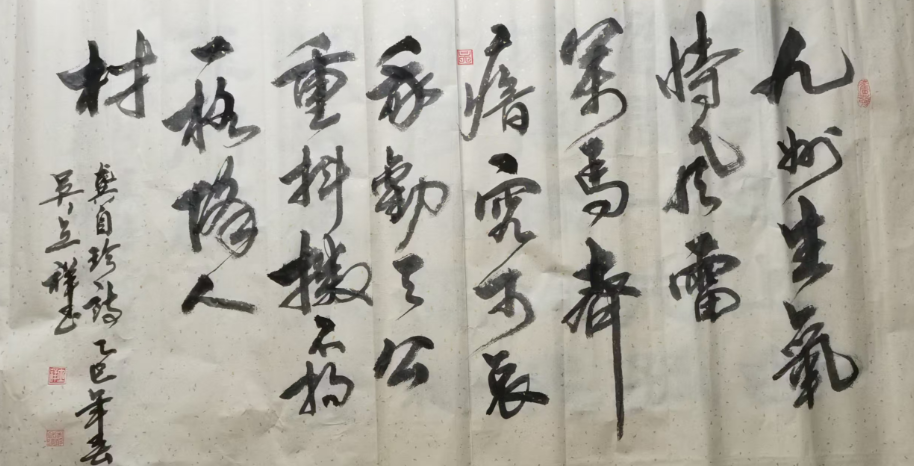 九州生氣
恃風雷
萬馬齊
瘖究可哀
我勸天公
重抖擻不拘
一格降人
材
龔自珍詩乙巳年春
吳立祥書